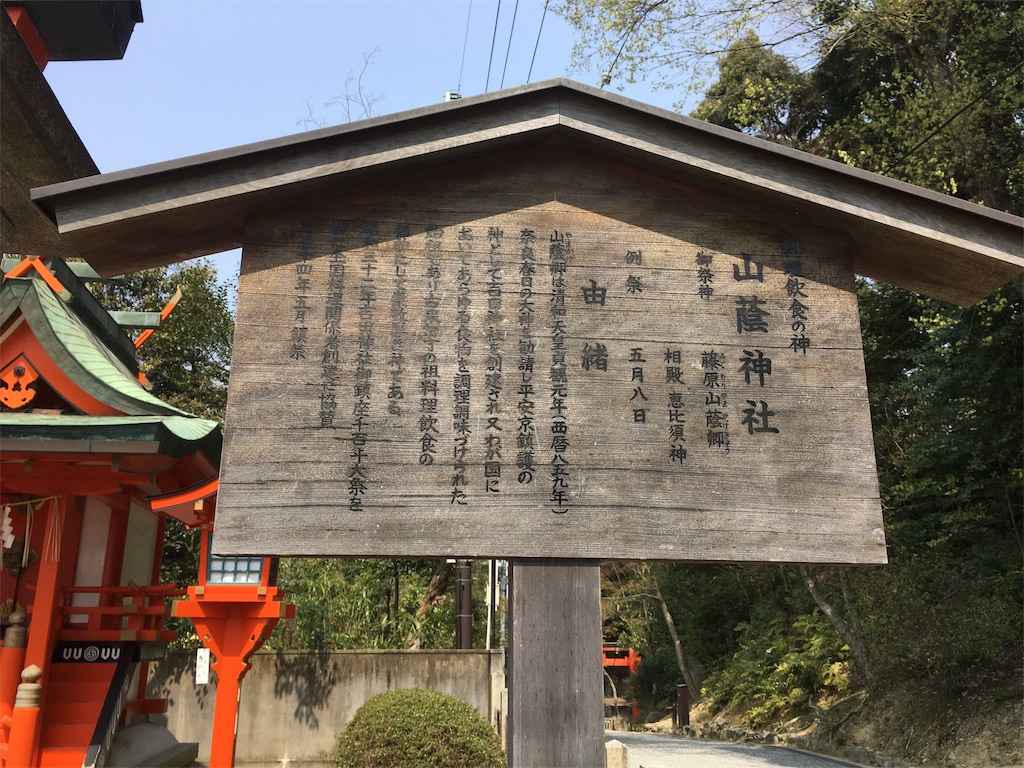 料理飲食の神
山蔭神社
御祭神
藤原山蔭卿
相殿 恵比須神
例祭 五月八日
由緒
山蔭卿は清和天皇貞観元年(西暦八五九年)
奈良春日の大神を勧請し平安京鎮護の
神として吉田神社を創建され又わが国に
おいてあらゆる食物を調理調味づけられた
始祖であり山蔭流その祖料理飲食の
祖神として
三十二年吉田神社御鎮座千百年大祭を
全国料理関係者
四年五月鎮祭